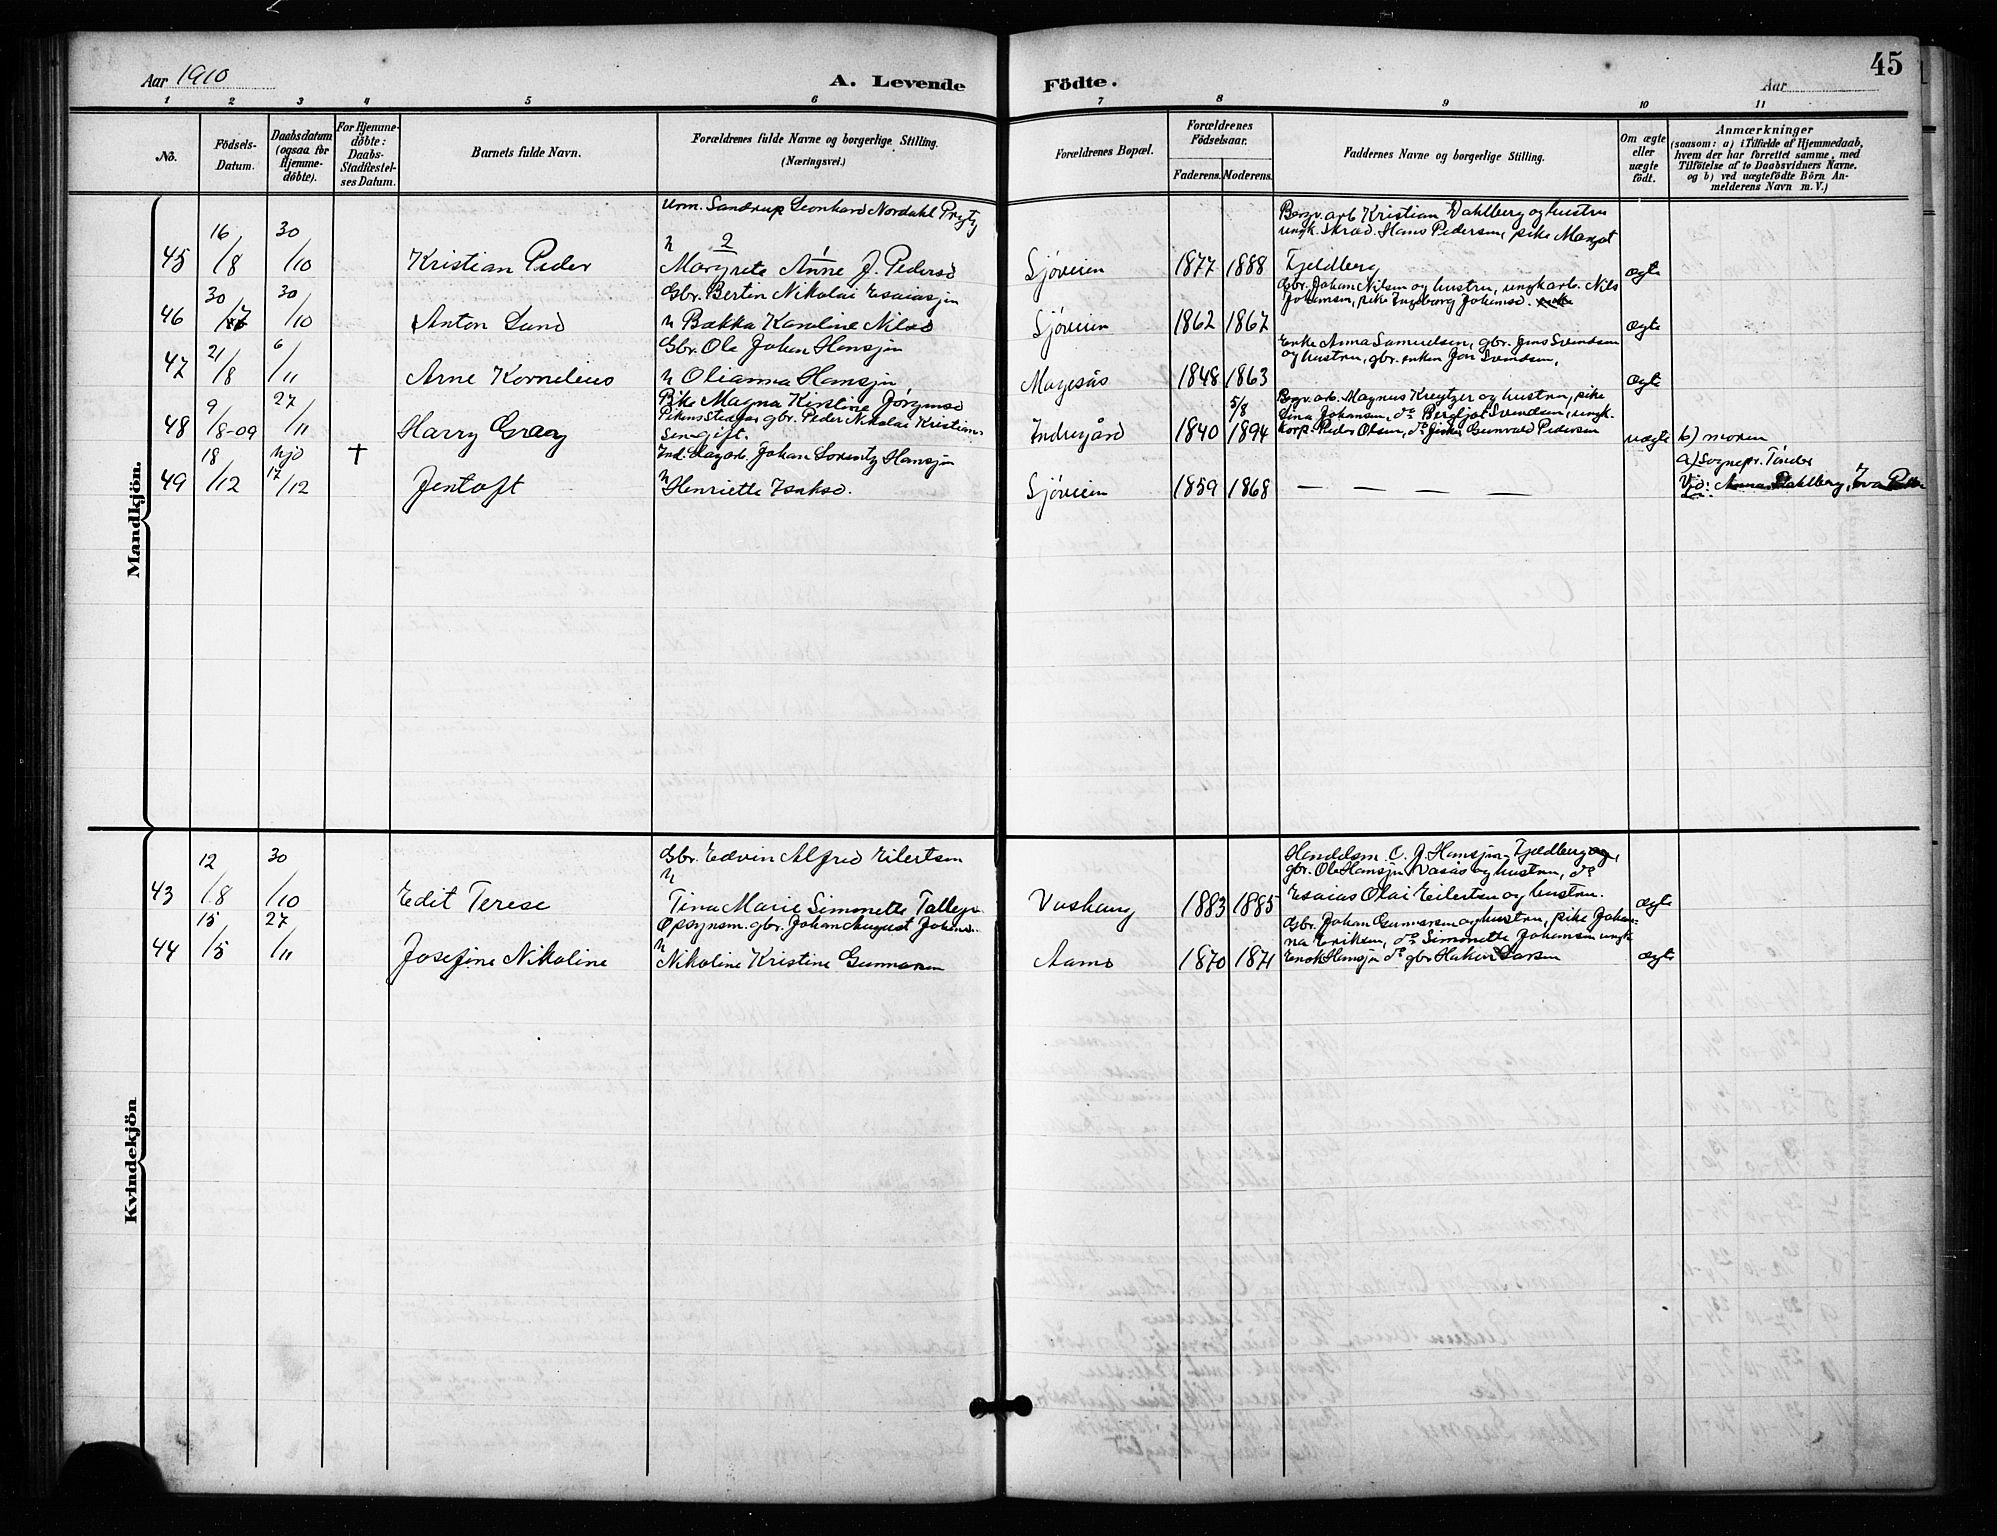 45
Aar 1910
A. Levende
Födte.
Aar
1 2 3 4 5 6 7 8 9 10 11
No.
Födsels-
Datum.
Daabsdatum
(ogsaa for
Hjemme-
døbte).
For Hjemme-
døbte:
Daabs-
Stadfæstel-
ses Datum.
Barnets fulde Navn.
Forældrenes fulde Navne og borgerlige Stilling.
(Næringsvei.)
Forældrenes Bopæl.
Forældrenes
Födselsaar.
Faderens.
Moderens.
Faddernes Navne og borgerlige Stilling.
Om ægte
eller
uægte
født.
Anmærkninger
(saasom: a) i Tilfælde af Hjemmedaab,
hvem der har forrettet samme, med
Tilføielse af to Daabsvidners Navne.
og b) ved uægtefødte Börn An-
melderens Navn m. V.)
Mandkjön.
45
16/8
30/10
Kristian Peder
Urm. Sandrup Leonhard Nordahl
h 2
Margrete Anne J. Peders
Sjøveien
1877 1888
Bergv. arb. Kristian Dahlberg og hustru
ungk. Skræd. Hans Pedersen, pike Margot
Fjeldberg
ægte
46
30/7
30/10
Anton Lund
Gbr. Bertin Nikolai Esaiasjen
h Bækka Karoline Nilsd
Sjøveien
1862 1867
Gbr. Johan Nilsen og hustru, ungkarb. Nils
Johansen, pike Ingeborg Johansd.
ægte
47
21/8
6/11
Arne Kornelius
Gbr. Ole Johan Hansjen
h Olianna Hansjen
Magesås
1848 1863
Enke Anna Samuelsen, gbr. Jens Svendsen
og hustru, gbr. enken Jon Svendsen.
ægte
48
9/8-09
27/11
Harry Graay
Pike Magna Kirstine Jørgensd
Pikens Stedfar gbr. Peder Nikolai Kristian-
sen gift.
Indregård
1840
5/8
1894
Bergv. arb. Magnus Kreutzer og hustru, pike
Lina Johansen, do Bergljot Svendsen, ungk.
korp. Peder Olsen, do fisker Gunvald Pedersen
uægte
b) moren
49
18/12
hjd
17/12
†
Jentoft
Ind. Dagarb. Johan Lorentz Hansjen
h Henriette Isaksd.
Sjøveien
1859 1868
— — — —
a) Sognepr. Tönder
Vid: Anna Dahlberg, Eva
Kvindekjön
43
12/8
30/10
Edit Terese
Gbr. Edvin Alfred Eilertsen
h
Tina Marie Simonette
Vushaug
1883 1885
Handelsm. O. J. Hansjen Fjeldberg og
gbr. Ole Hansjen Vasås og hustru, do
Esaias Olai Eilertsen og hustru.
ægte
44
15/5
27/11
Josefine Nikoline
Opsynsm. gbr. Johan August Johans
h
Nikoline Kristine Gunnarsen
Aamo
1870 1871
Gbr. Johan Gunnarsen og hustru, pike Johan-
na Eriksen, do Simonette Johansen ungk
Enok Hansjen do gbr Hakon Larsen
ægte